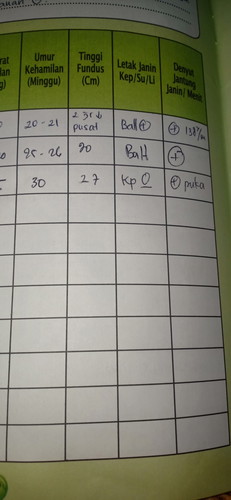 Umur Kehamilan (Minggu)
Tinggi Fundus (Cm)
Letak Janin Kep/Su/Li
Denyut Jantung Janin/ Menit
20-21 pusat Ball (+) (+)
25-26 20 Ball (+)
30 27 Kp (+) puka